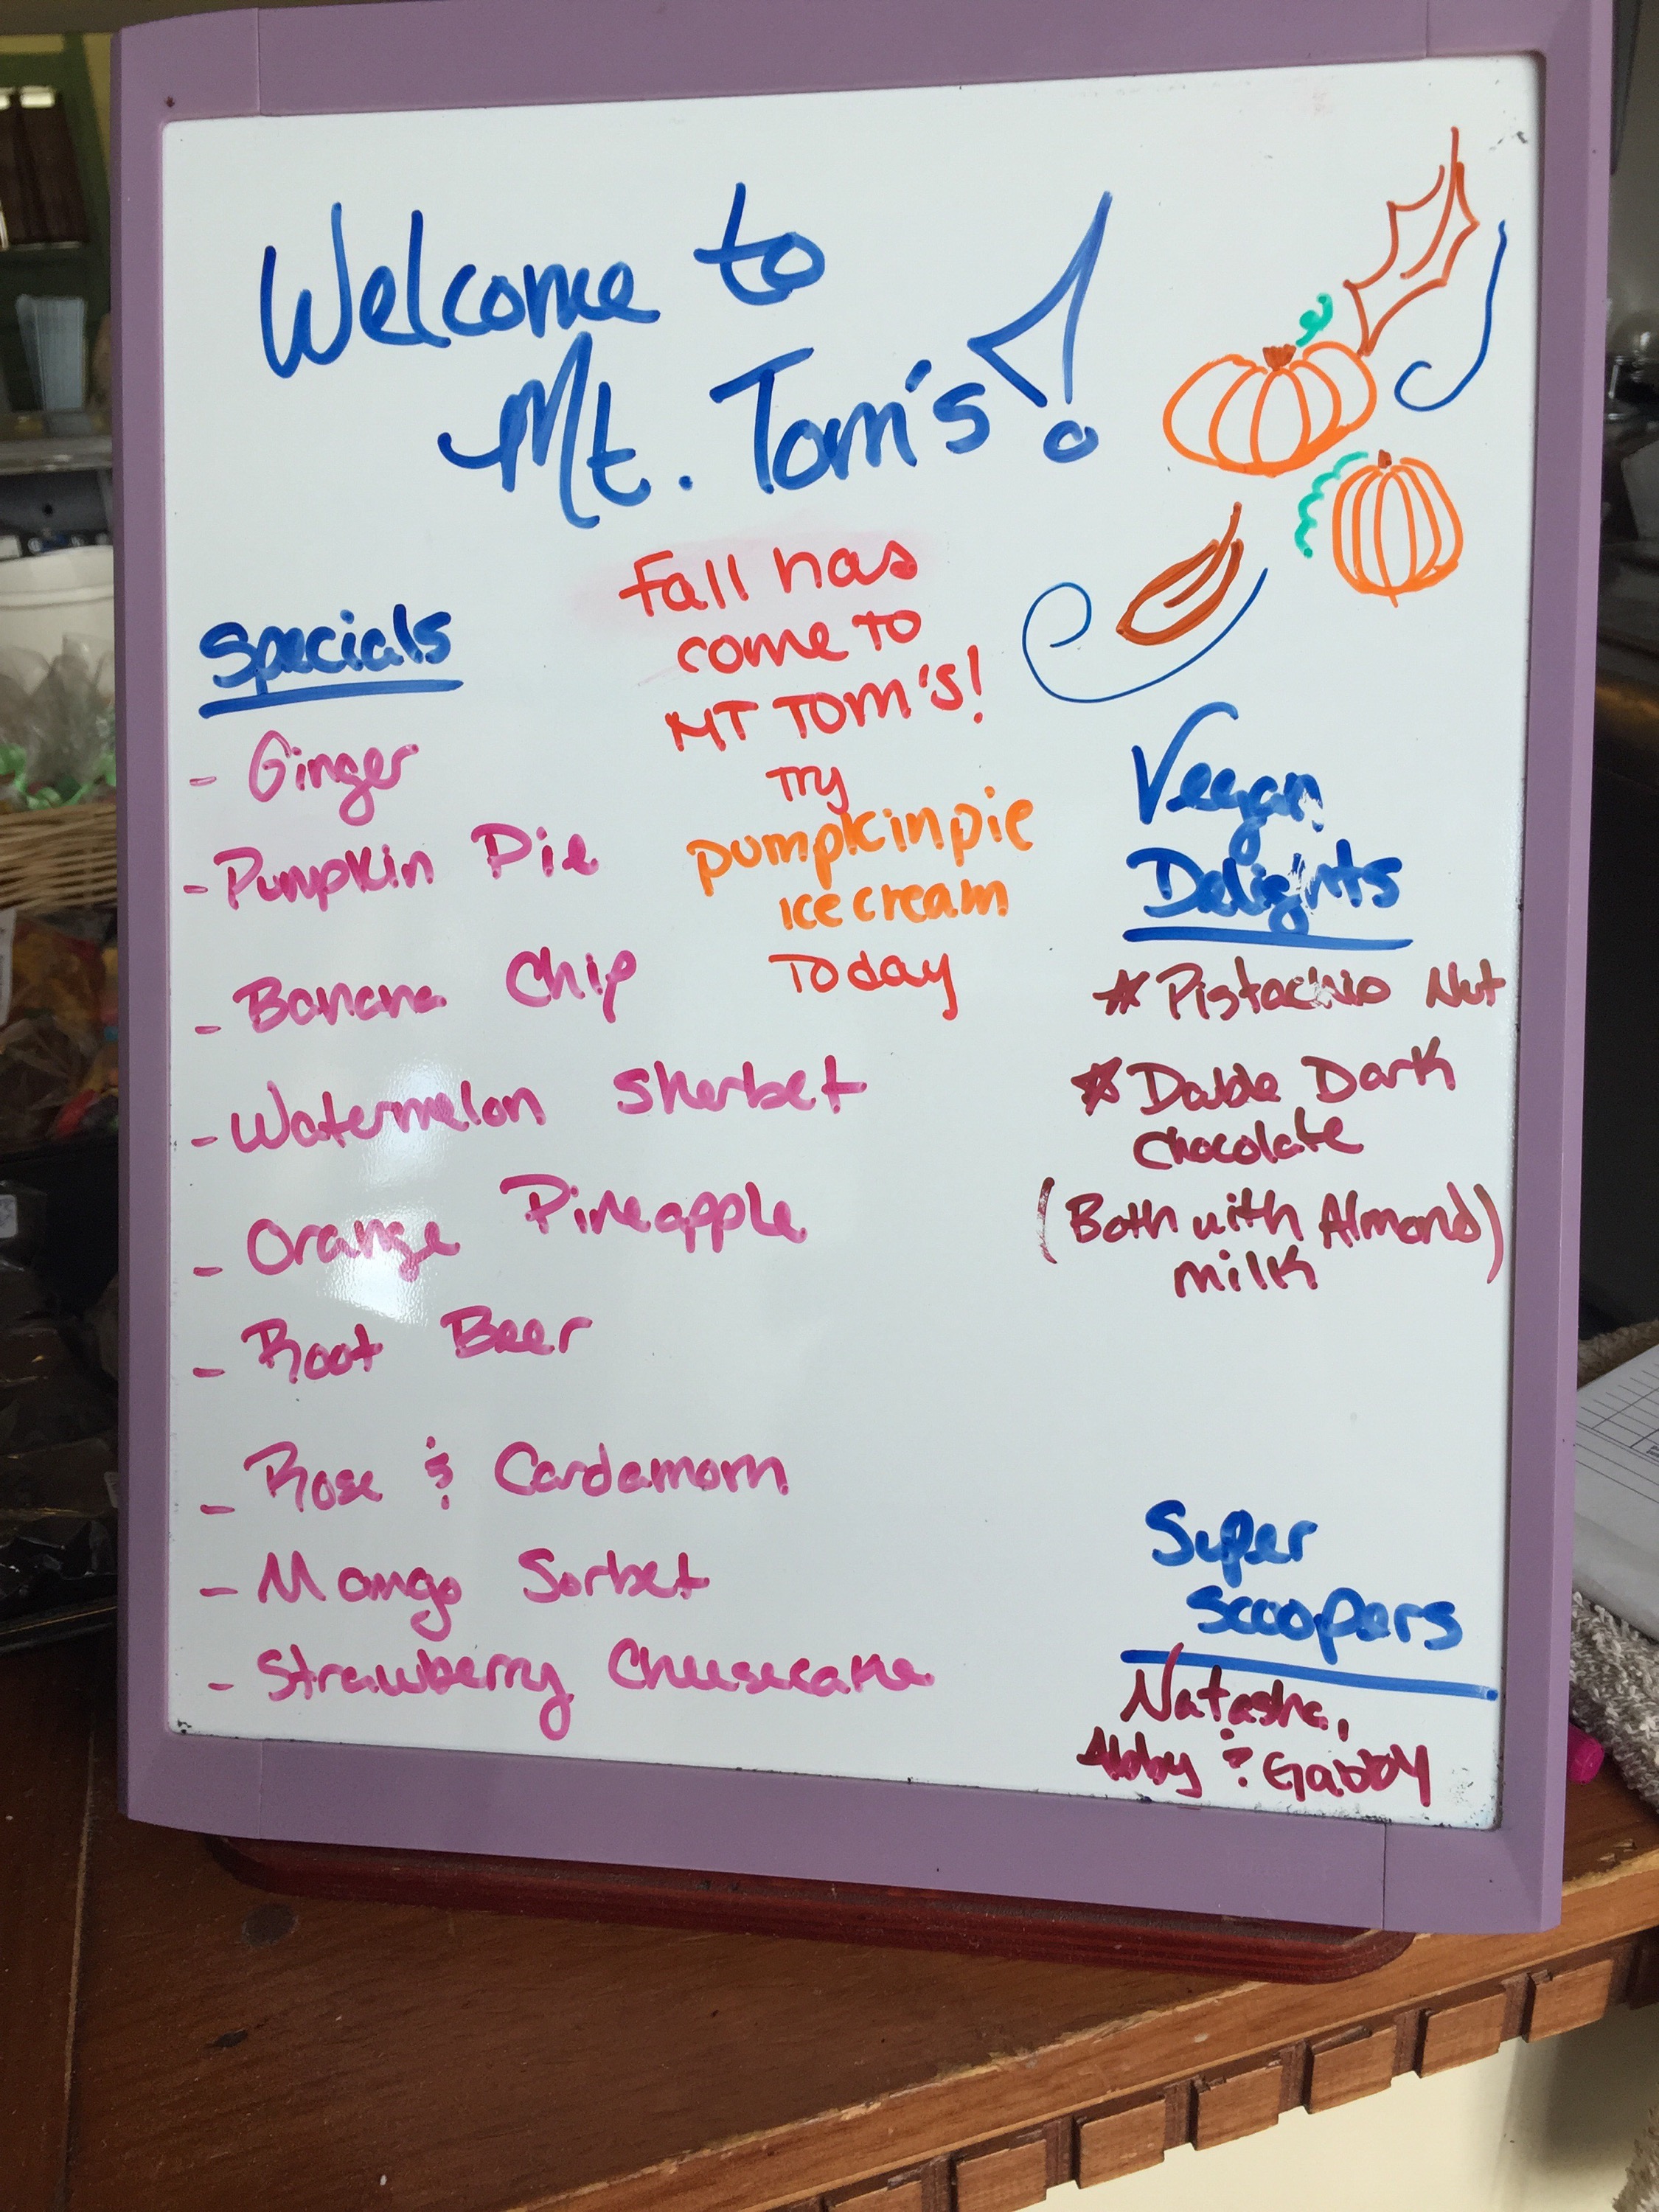 Welcome to
Mt. Tom's!
Fall has
come to
MT TOM'S!
Try
pumpkin pie
ice cream
Today
Specials
- Ginger
- Pumpkin Pie
- Banana Chip
- Watermelon Sherbet
- Orange Pineapple
- Root Beer
- Rose & Cardamom
- Mango Sorbet
- Strawberry Cheesecake
Vegan
Delights
* Pistachio Nut
* Double Dark
Chocolate
(Both with Almond)
milk
Super
Scoopers
Natasha,
Abby & Gabby